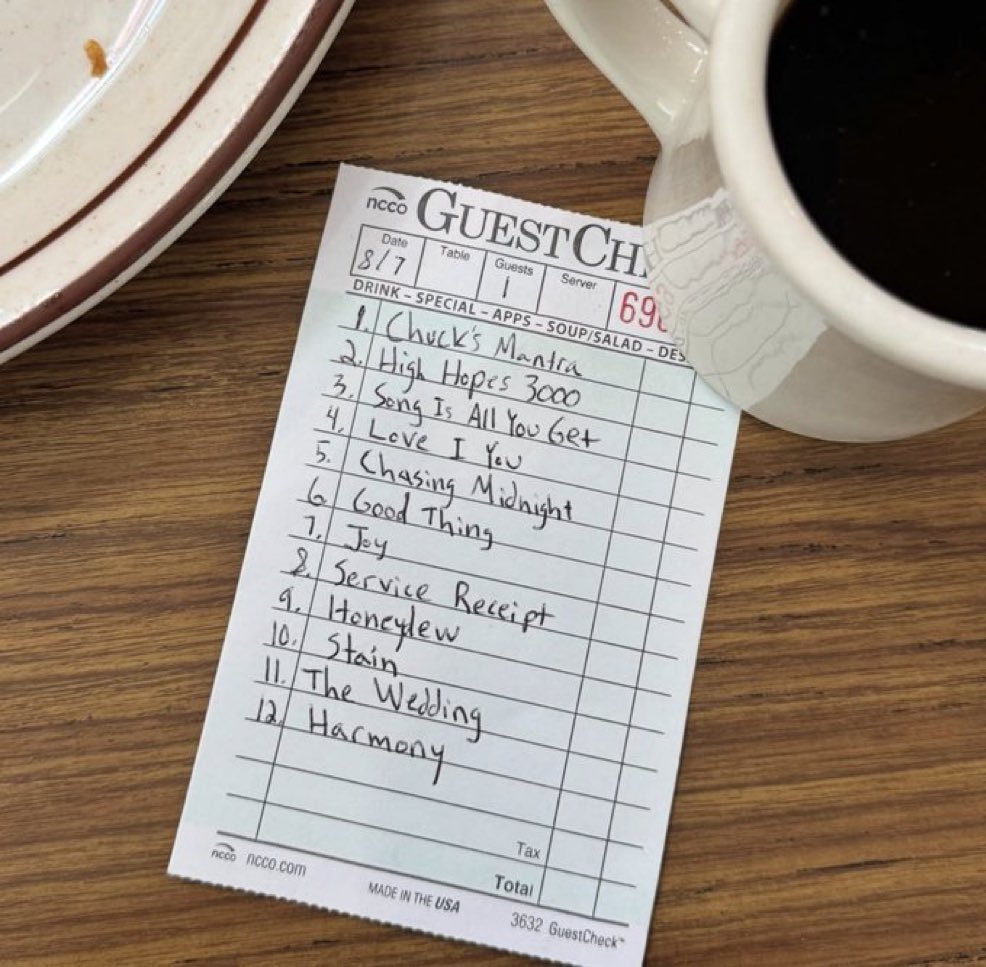 ncco GUESTCH
Date Table Guests Server
8/7 1 69
DRINK – SPECIAL – APPS – SOUP/SALAD – DES
1. Chuck's Mantra
2. High Hopes 3000
3. Song Is All You Get
4. Love I You
5. Chasing Midnight
6. Good Thing
7. Joy
8. Service Receipt
9. Honeylew
10. Stain
11. The Wedding
12. Harmony
Tax
Total
ncco ncco.com
MADE IN THE USA
3632 GuestCheck™